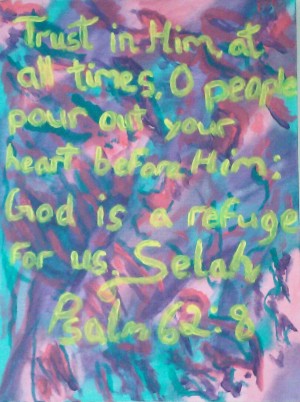 Trust in Him, at
all times, O people
pour out your
heart before Him:
God is a refuge
For us. Selah
Psalm 62:8